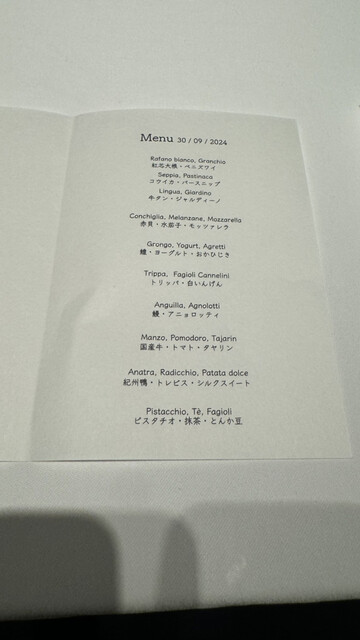 Menu 30 / 09 / 2024
Rafano bianco, Granchio
紅芯大根・ベニズワイ
Seppia, Pastinaca
コウイカ・パースニップ
Lingua, Giardino
牛タン・ジャルディーノ
Conchiglia, Melanzane, Mozzarella
赤貝・水茄子・モッツァレラ
Grongo, Yogurt, Agretti
鱧・ヨーグルト・おかひじき
Trippa, Fagioli Cannelini
トリッパ・白いんげん
Anguilla, Agnolotti
鰻・アニョロッティ
Manzo, Pomodoro, Tajarin
国産牛・トマト・タヤリン
Anatra, Radicchio, Patata dolce
紀州鴨・トレビス・シルクスイート
Pistacchio, Tè, Fagioli
ピスタチオ・抹茶・とんか豆